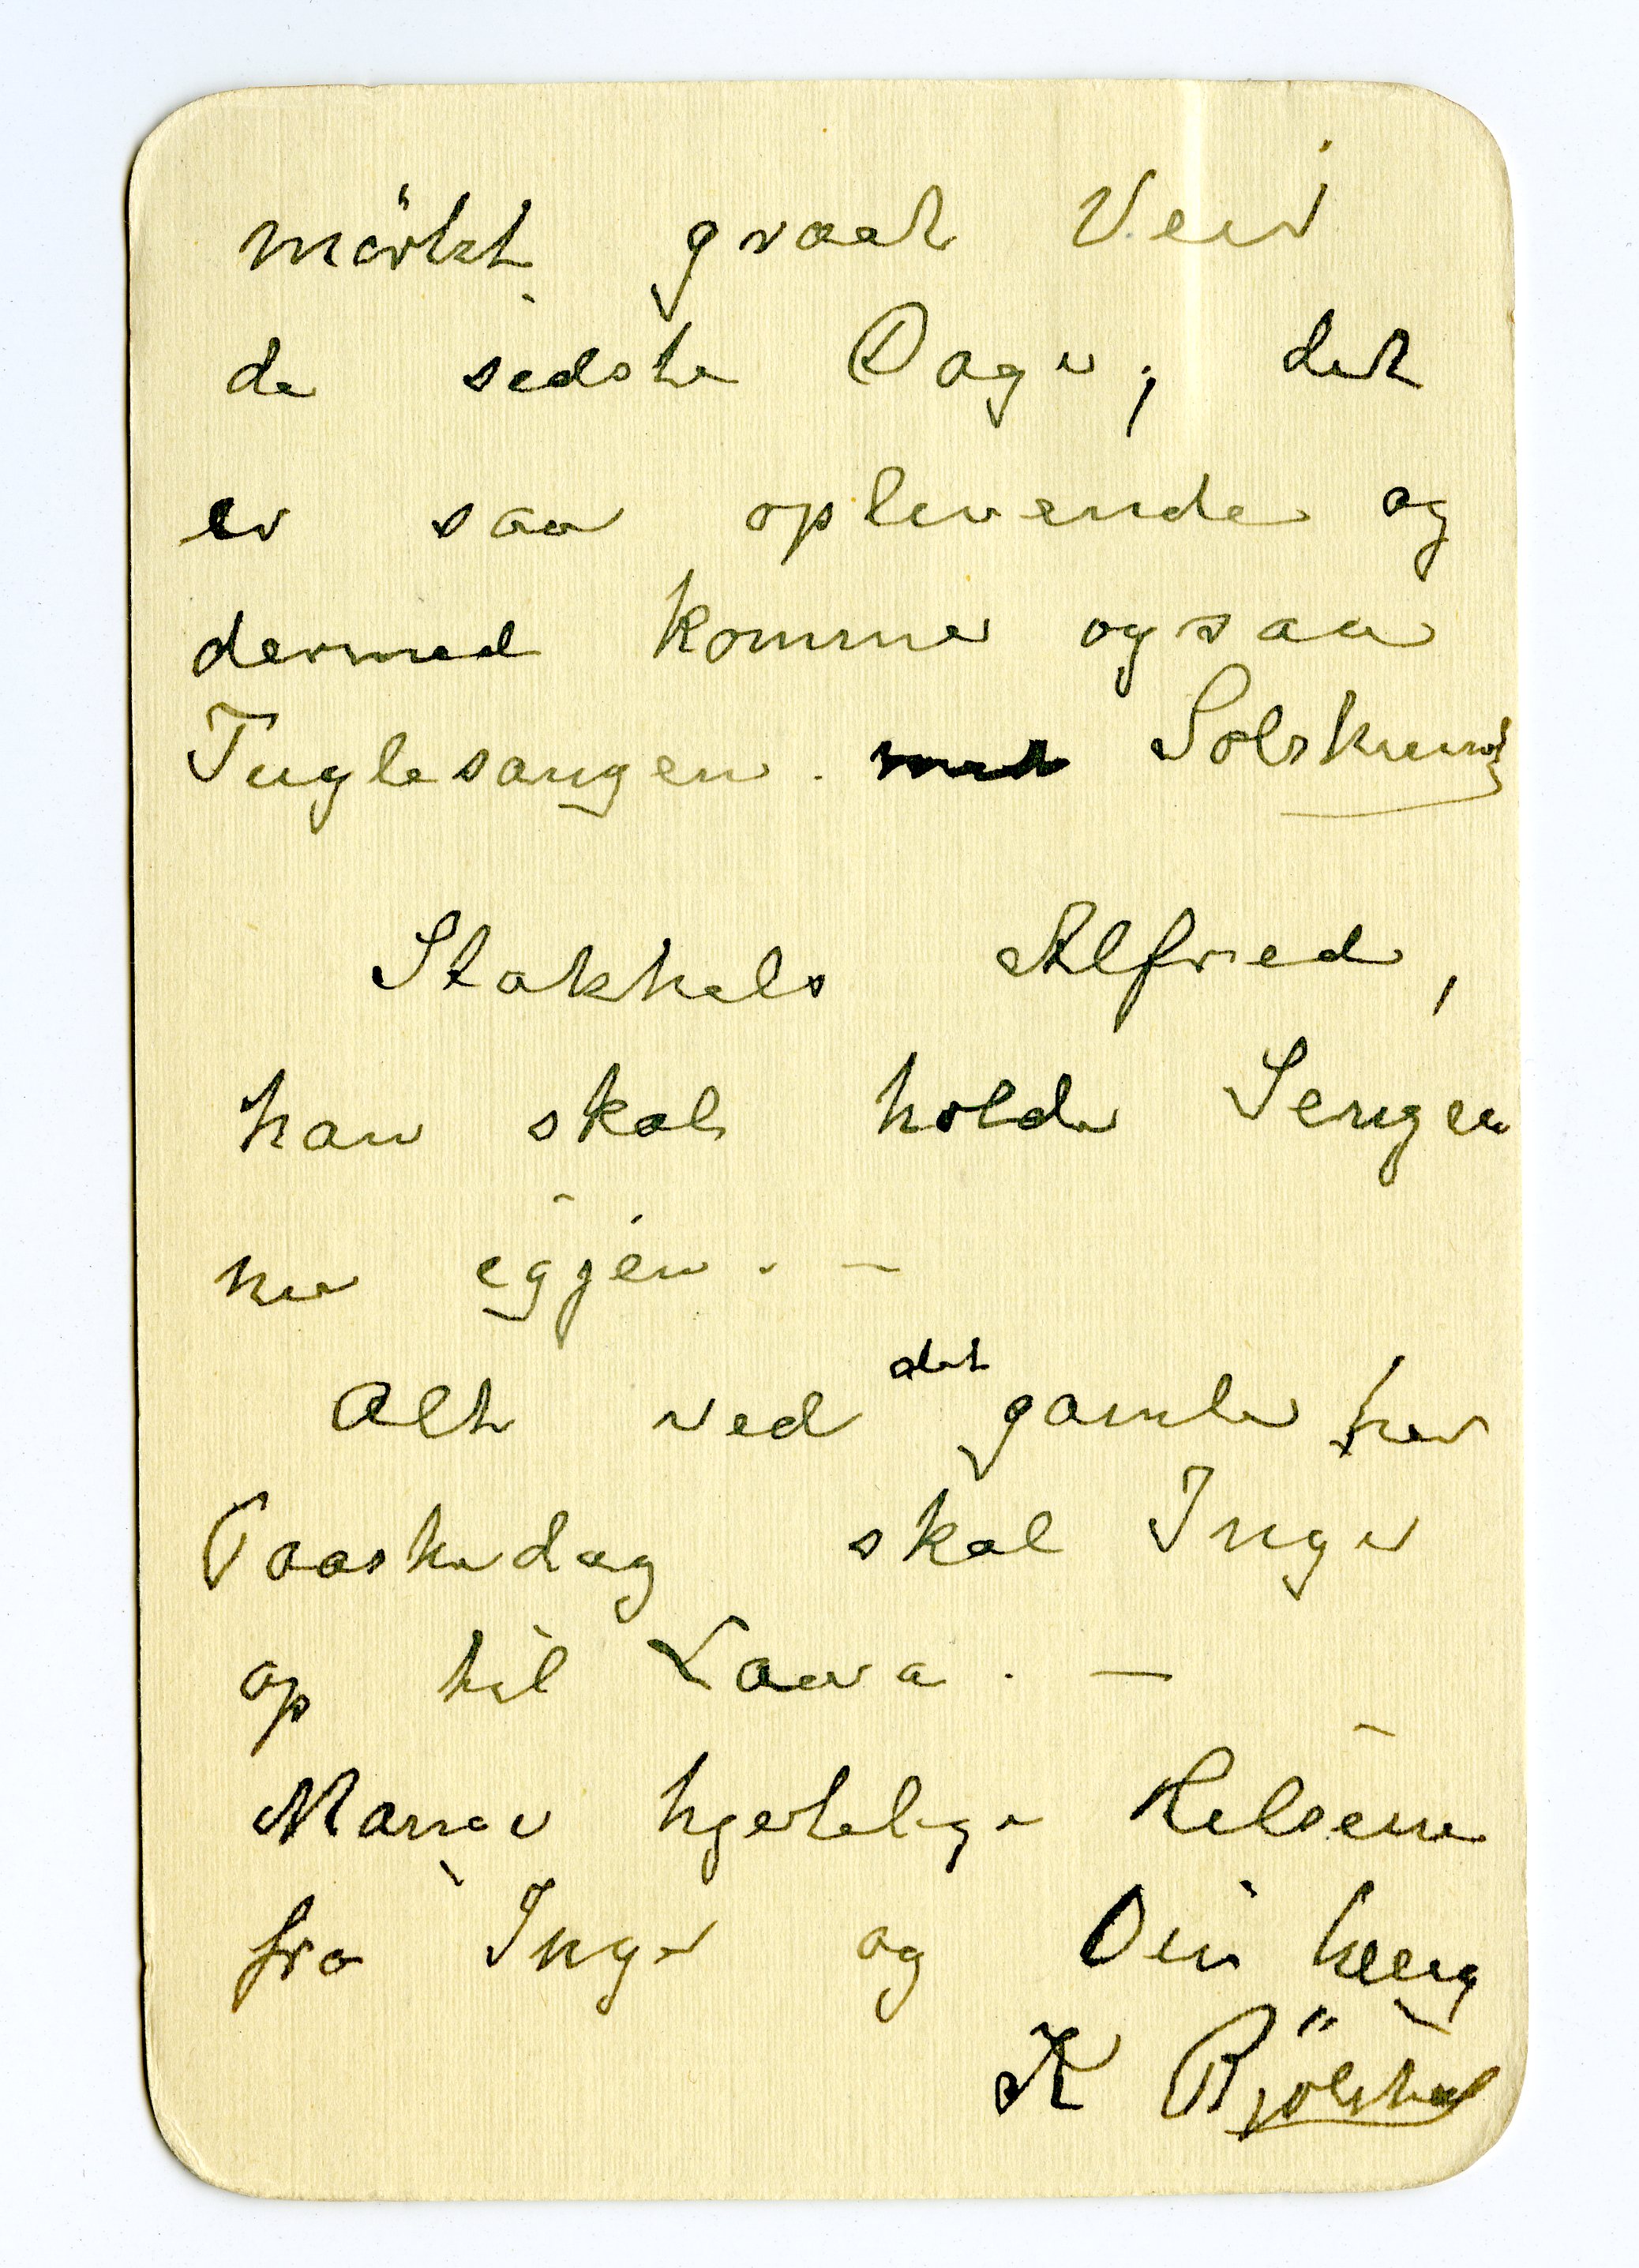 mörkt graat Veir
de sidste Dage; det
er saa oplevende og
dermed kommer ogsaa
Fuglesangen. Solskin
Stakkels Alfred,
han skal holde Sengen
nu igjen. —
Alt ved det gamle her
Paaskedag skal Inger
op til Laura. —
Mange hjertelige Hilsener
fra Inger og Din heng
K Bjölstad